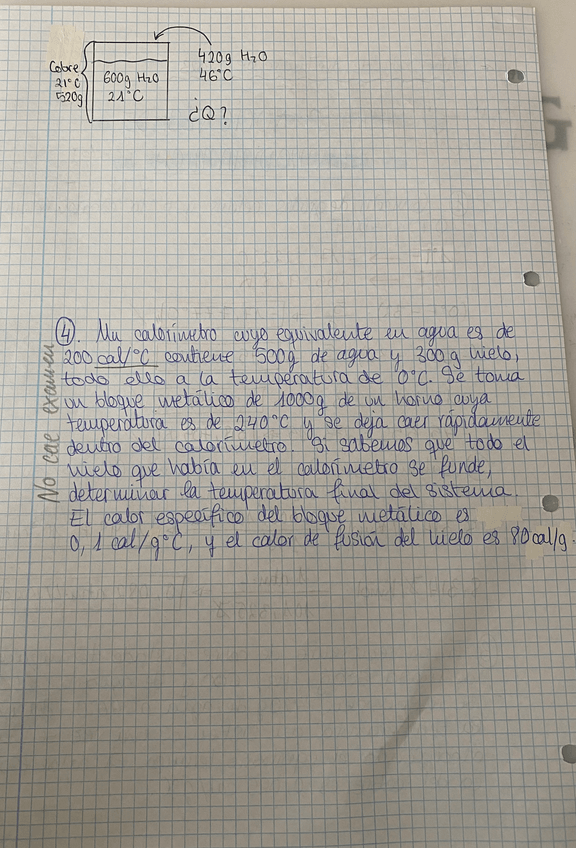 420g H₂O
Cobre
21°C
520g
600g H₂O
21°C
46°C
¿Q?
④. Un calorímetro cuyo equivalente en agua es de
200 cal/°C contiene 500g de agua y 300g hielo,
todo ello a la temperatura de 0°C. Se toma
un bloque metálico de 1000g de un horno cuya
temperatura es de 240°C y se deja caer rápidamente
dentro del calorímetro. Si sabemos que todo el
hielo que había en el calorímetro se funde,
determinar la temperatura final del sistema.
El calor específico del bloque metálico es
0,1 cal/g°C, y el calor de fusión del hielo es 80cal/g.
No cae examen
G